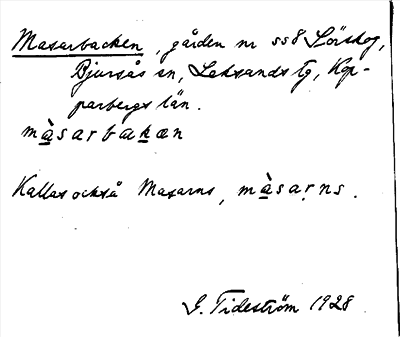 Masarbacken, gården nr 558 Lörskog,
Bjursås sn, Leksands tg, Kop-
parbergs län.
màsarbakæn
Kallas också Masarns, màsarṇs.
G. Tideström 1928